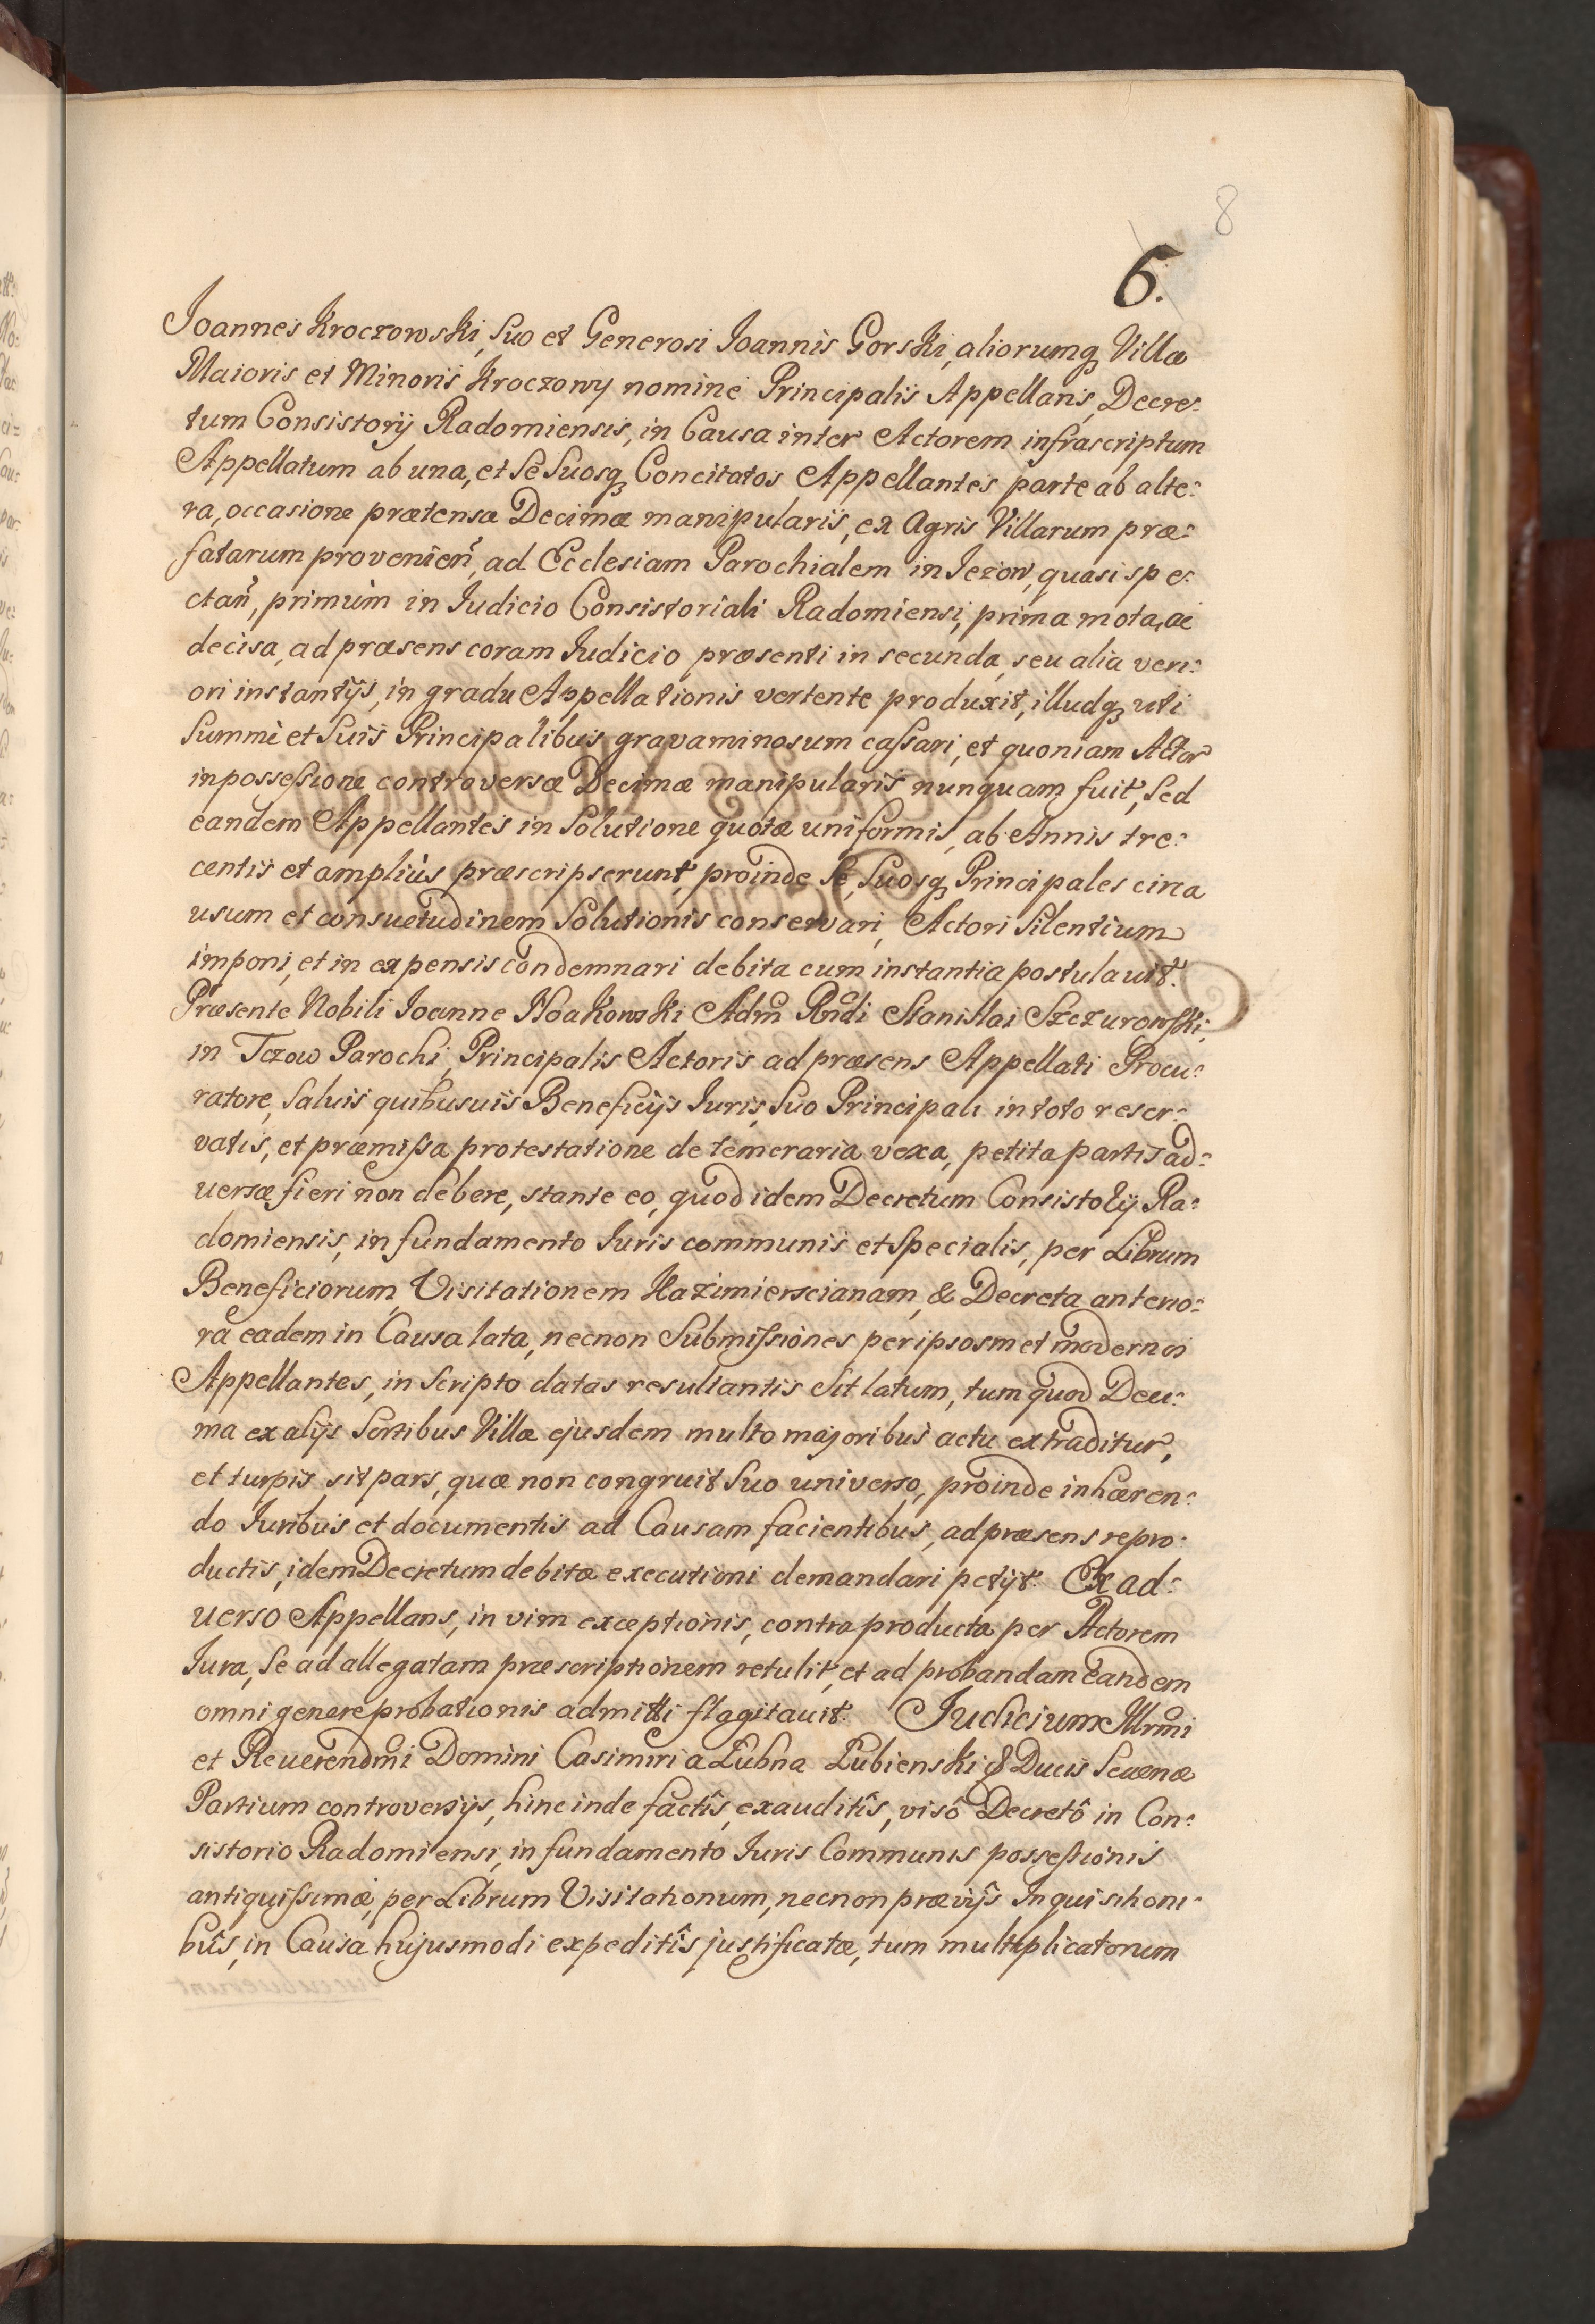 8
6.
Joannes Kroczowski, suo et Generosi Joannis Gorski, aliorumq Villæ
Maioris et Minoris Kroczowy nomine Principalis Appellans, Decre:
tum Consistorij Radomiensis, in Causa inter Actorem infrascriptum
Appellatum ab una, et Se Suosq Concitatos Appellantes parte ab alte:
ra, occasione prætensæ Decimæ manipularis, ex Agris Villarum præ:
fatarum provenien, ad Ecclesiam Parochialem in Jezow, quasi spe:
ctan, primùm in Judicio Consistoriali Radomiensi, prima mota, ac
decisa, ad præsens coram Judicio præsenti in secunda, seu alia veri:
ori instantijs, in gradu Appellationis vertente produxit, illudq uti
Summè et Suis Principalibus gravaminosum cassari, et quoniam Actor
in possessione controversæ Decimæ manipularis nunquam fuit, Sed
eandem Appellantes in Solutione quotæ uniformis, ab Annis tre:
centis et ampliùs præscripserunt, proinde Se, Suosq Principales circa
usum et consuetudinem Solutionis conservari, Actori Silentium
imponi, et in expensis condemnari debita cum instantia postulauit.
Præsente Nobili Joanne Hoakowski Adm Rndi Stanislai Szczurowski,
in Tczow Parochi, Principalis Actoris ad præsens Appellati Procu:
ratore, Saluis quibusuis Beneficijs Juris, Suo Principali in toto reser:
vatis, et præmissa protestatione de temeraria vexa, petita partis ad:
uersæ fieri non debere, stante eo, quod idem Decretum Consistorij Ra:
domiensis, in fundamento Juris communis et Specialis, per Librum
Beneficiorum, Visitationem Kazimierscianam, & Decreta anterio:
ra eadem in Causa lata, necnon Submissiones per ipsosmet modernos
Appellantes, in Scripto datas resultantis Sit latum, tum quod Deci:
ma ex alijs Sortibus Villæ ejusdem multo majoribus actu extraditur,
et turpis sit pars, quæ non congruit Suo universo, proinde inhæren:
do Juribus et documentis ad Causam facientibus, ad præsens repro:
ductis, idem Decretum debitæ executioni demandari petijt. Ex ad:
uerso Appellans, in vim exceptionis, contra producta per Actorem
Jura, Se ad allegatam præscriptionem retulit, et ad probandam eandem
omni genere probationis admitti flagitauit. Judicium Illrmi
et Reuerendmi Domini Casimiri a Łubna Łubienski & Ducis Seueriæ
Partium controversijs, hinc inde factîs, exauditîs, visô Decretô in Con:
sistorio Radomiensi, in fundamento Juris Communis possessionis
antiquissimæ, per Librum Visitationum, necnon prævijs Inquisitioni:
bus, in Causa hujusmodi expeditîs justificatæ, tum multiplicatorum